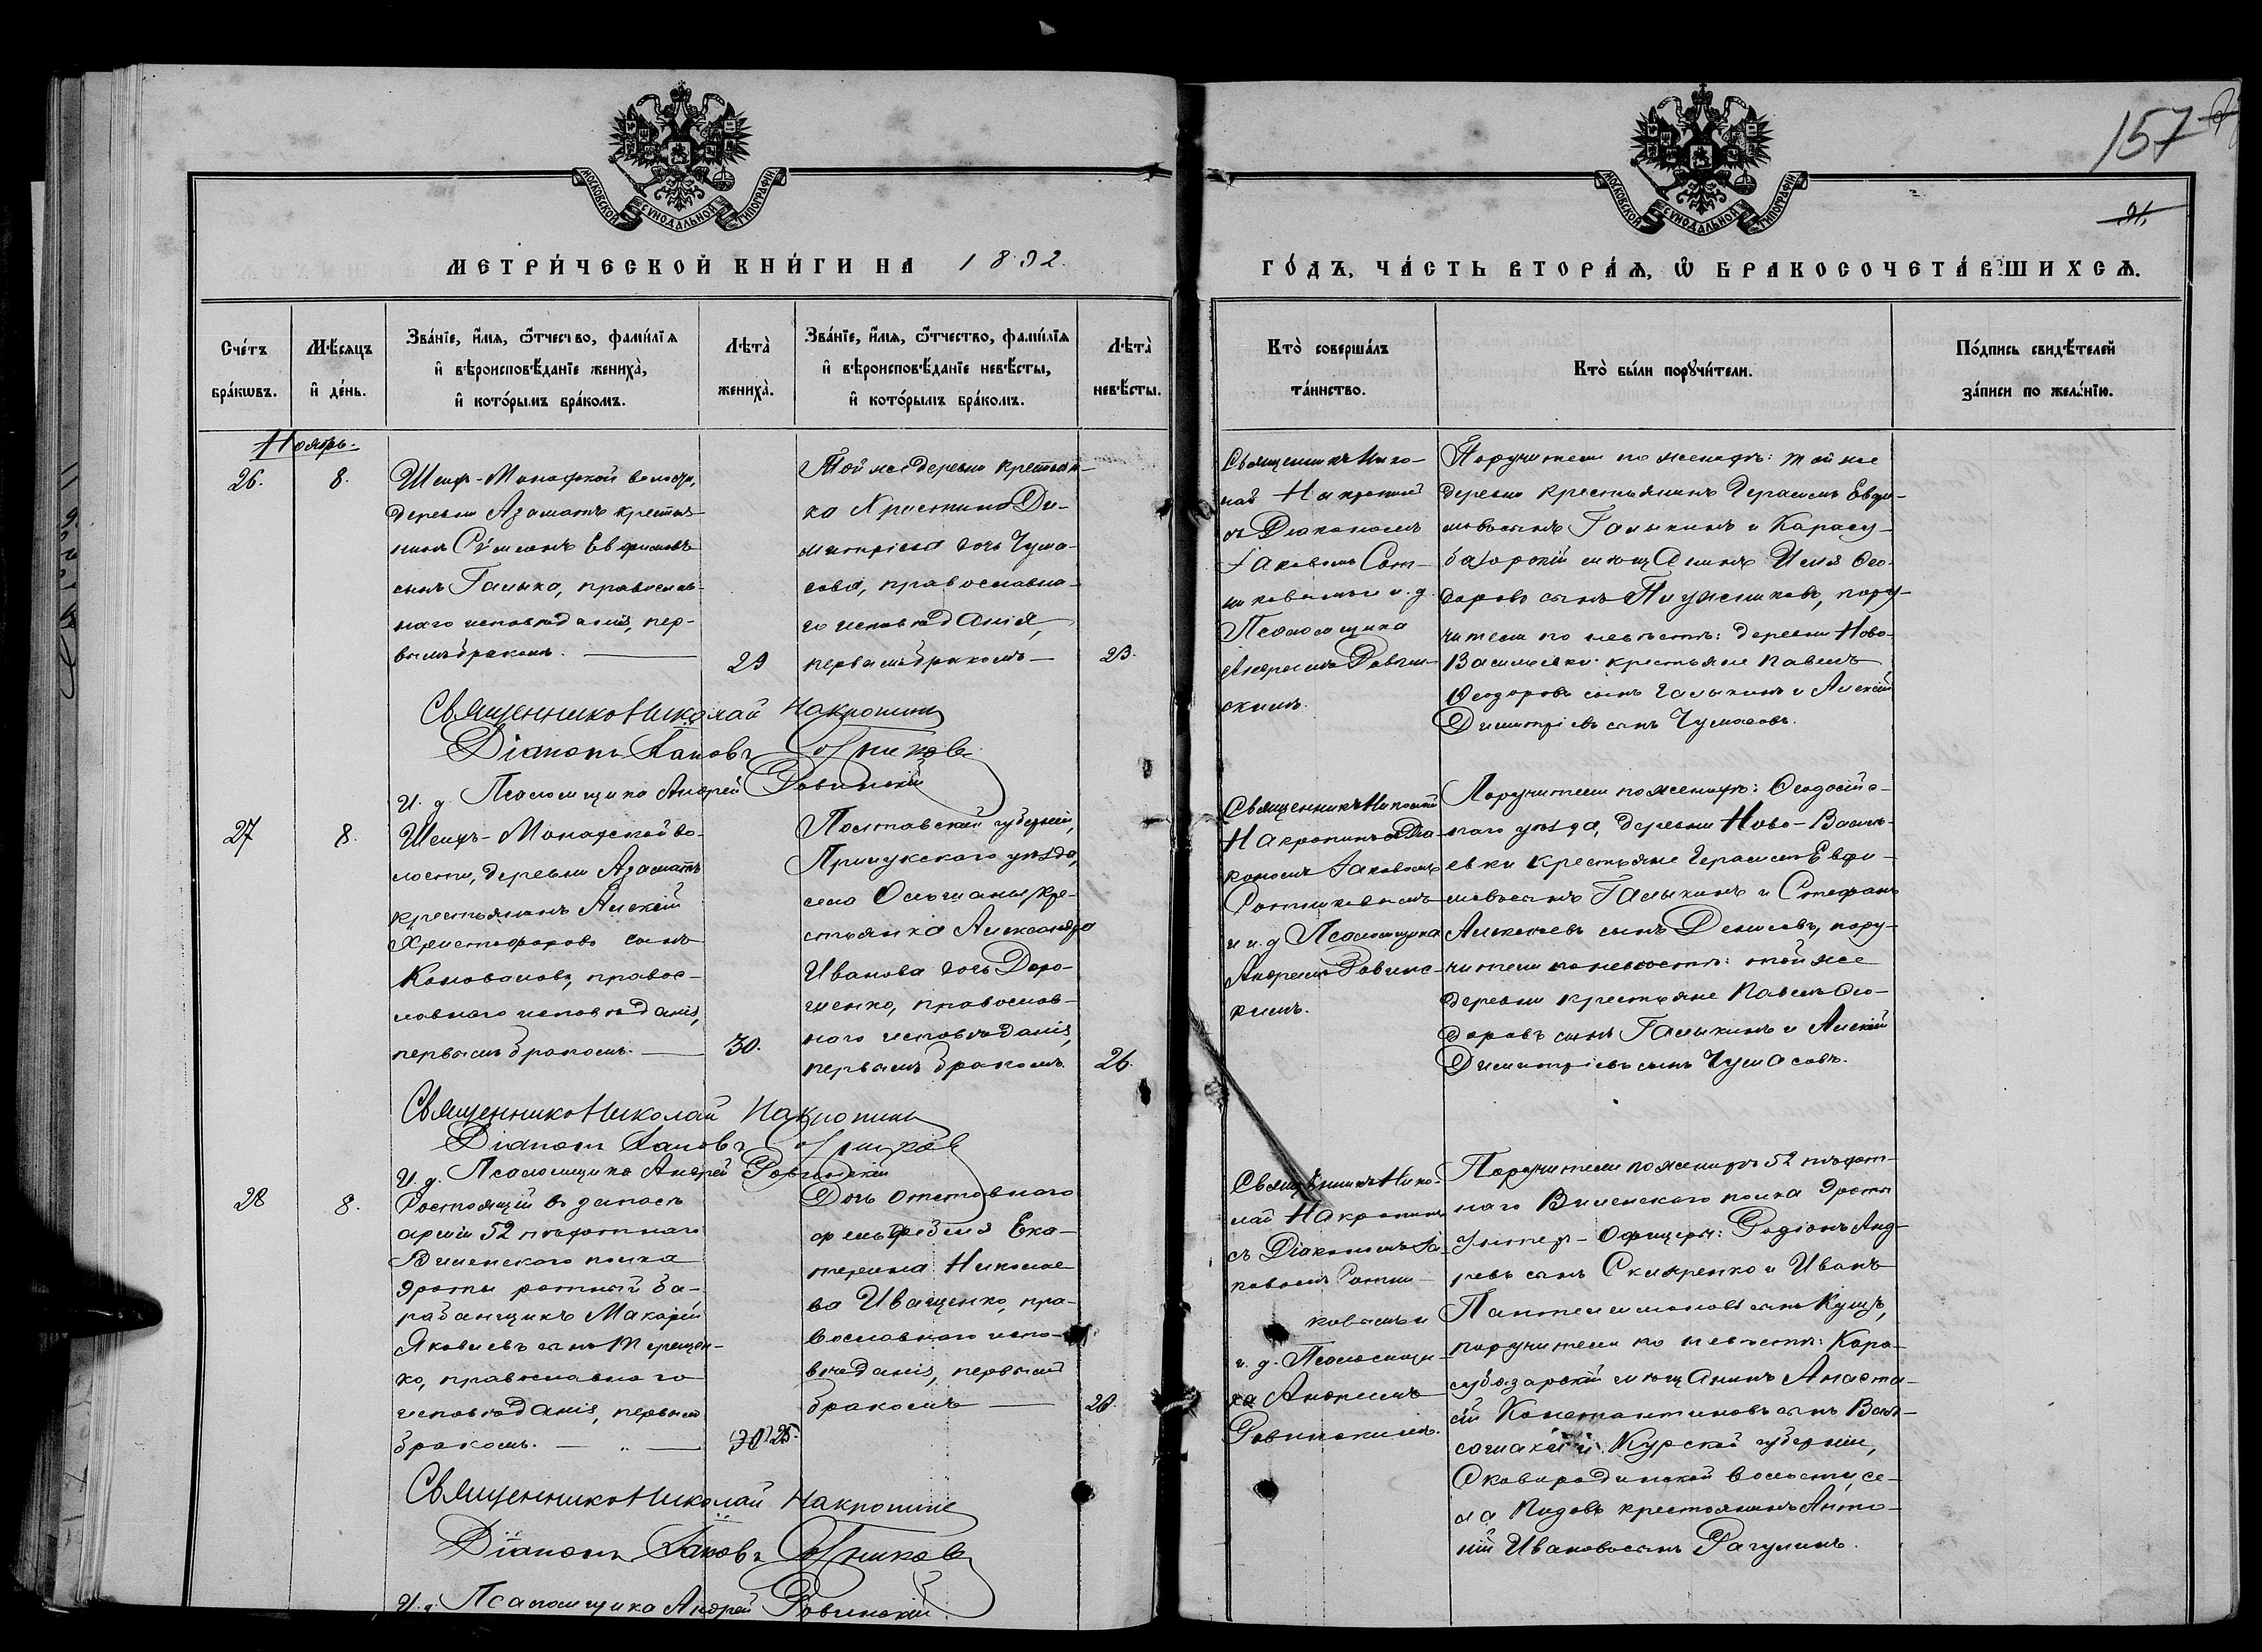 157
МОСКОВСКОЙ СѴНОДАЛЬНОЙ ТИПОГРАФІИ
МОСКОВСКОЙ СѴНОДАЛЬНОЙ ТИПОГРАФІИ
91.
МЕТРИ́ЧЕСКОЙ КНИ́ГИ НА 1892.
ГО́ДЪ, ЧА́СТЬ ВТОРА́Ѧ, Ѿ БРАКОСОЧЕТА́ВШИХСѦ.
Сче́тъ бра́кѡвъ.
Мѣ́сяцъ и҆ де́нь.
Зва́нїе, и҆́мѧ, ѻ҆́тчество, фами́лїѧ
и҆ вѣроисповѣ́данїе жениха̀,
и҆ кото́рымъ бра́комъ.
Лѣта̀ жениха̀.
Зва́нїе, и҆́мѧ, ѻ҆́тчество, фами́лїѧ
и҆ вѣроисповѣ́данїе невѣ́сты,
и҆ кото́рымъ бра́комъ.
Лѣта̀ невѣ́сты.
Кто̀ соверша́лъ та́инство.
Кто̀ бы́ли порꙋчи́тели.
По́дпись свидѣ́телей
за́писи по жела́нїю.
Ноябрь.
26.
8.
Шейхъ-Монахской волости,
деревни Азаматъ крестья-
нинъ Сѵмеонъ Евфимовъ
сынъ Галыка, православ-
наго исповѣданія, пер-
вымъ бракомъ.
29
Той же деревни крестьян-
ка Христина Ди-
митріева дочь Чума-
сова, православна-
го исповѣданія,
первымъ бракомъ
23.
Священникъ Нико-
лай Накропинъ
съ Діакономъ
Іаковомъ Сот-
никовымъ и и. д.
Псаломщика
Андреемъ Ровин-
скимъ.
Поручители по женихѣ: той же
деревни крестьянинъ Герасимъ Евфи-
мовъ сынъ Галыкинъ и Карасу-
базарскій мѣщанинъ Илія Ѳео-
доровъ сынъ, пору-
чители по невѣстѣ: деревни Ново-
Васильевки крестьяне Павелъ
Ѳеодоровъ сынъ Галыкинъ и Алексій
Димитріевъ сынъ Чумасовъ.
Священникъ Николай Накропинъ
Діаконъ Іаковъ Сотниковъ
И. д. Псаломщика Андрей Ровинскій
27
8.
Шейхъ-Монахской во-
лости, деревни Азаматъ
крестьянинъ Алексій
Христофоровъ сынъ
Коноваловъ, правос-
лавнаго исповѣданія,
первымъ бракомъ.
30.
Полтавской губерніи,
Прилукскаго уѣзда,
села Ольшаны, кре-
стьянка Александра
Иванова дочь Доро-
шенко, православ-
наго исповѣданія,
первымъ бракомъ.
26.
Священникъ Николай
Накропинъ съ Діа-
кономъ Іаковомъ
Сотниковымъ
и и. д. Псаломщика
Андреемъ Ровинс-
кимъ.
Поручители по женихѣ: Ѳеодосійс-
каго уѣзда, деревни Ново-Василь-
евки крестьяне Герасимъ Евфи-
мовъ сынъ Галыкинъ и Стефанъ
Алексѣевъ сынъ Денисовъ, пору-
чители по невѣстѣ: той же
деревни крестьяне Павелъ Ѳео-
доровъ сынъ Галыкинъ и Алексій
Димитріевъ сынъ Чумасовъ.
Священникъ Николай Накропинъ
Діаконъ Іаковъ Сотниковъ
И. д. Псаломщика Андрей Ровинскій
28
8.
Состоящій въ запасѣ
арміи 52 пѣхотнаго
Виленскаго полка
9 роты ротный ба-
рабанщикъ Макарій
Яковлевъ сынъ Терещен-
ко, православнаго
исповѣданія, первымъ
бракомъ.
(30) 28.
Дочь отставнаго
фельдфебеля Ека-
терина Николае-
ва Иващенко, пра-
вославнаго испо-
вѣданія, первымъ
бракомъ
20.
Священникъ Нико-
лай Накропинъ
съ Діакономъ Іа-
ковомъ Сотни-
ковымъ и
и. д. Псаломщи-
ка Андреемъ
Ровинскимъ.
Поручители по женихѣ 52 пѣхот-
наго Виленскаго полка 9 роты
Унтеръ-Офицеры: Родіонъ Анд-
реевъ сынъ Скляренко и Иванъ
Пантелеимоновъ сынъ Кущъ,
поручители по невѣстѣ: Кара-
субазарскій мѣщанинъ Анаста-
сій Константиновъ сынъ
и Курской губерніи,
волости, се-
ла крестьянинъ Анто-
ній Ивановъ сынъ Рагулинъ.
Священникъ Николай Накропинъ
Діаконъ Іаковъ Сотниковъ
И. д. Псаломщика Андрей Ровинскій.